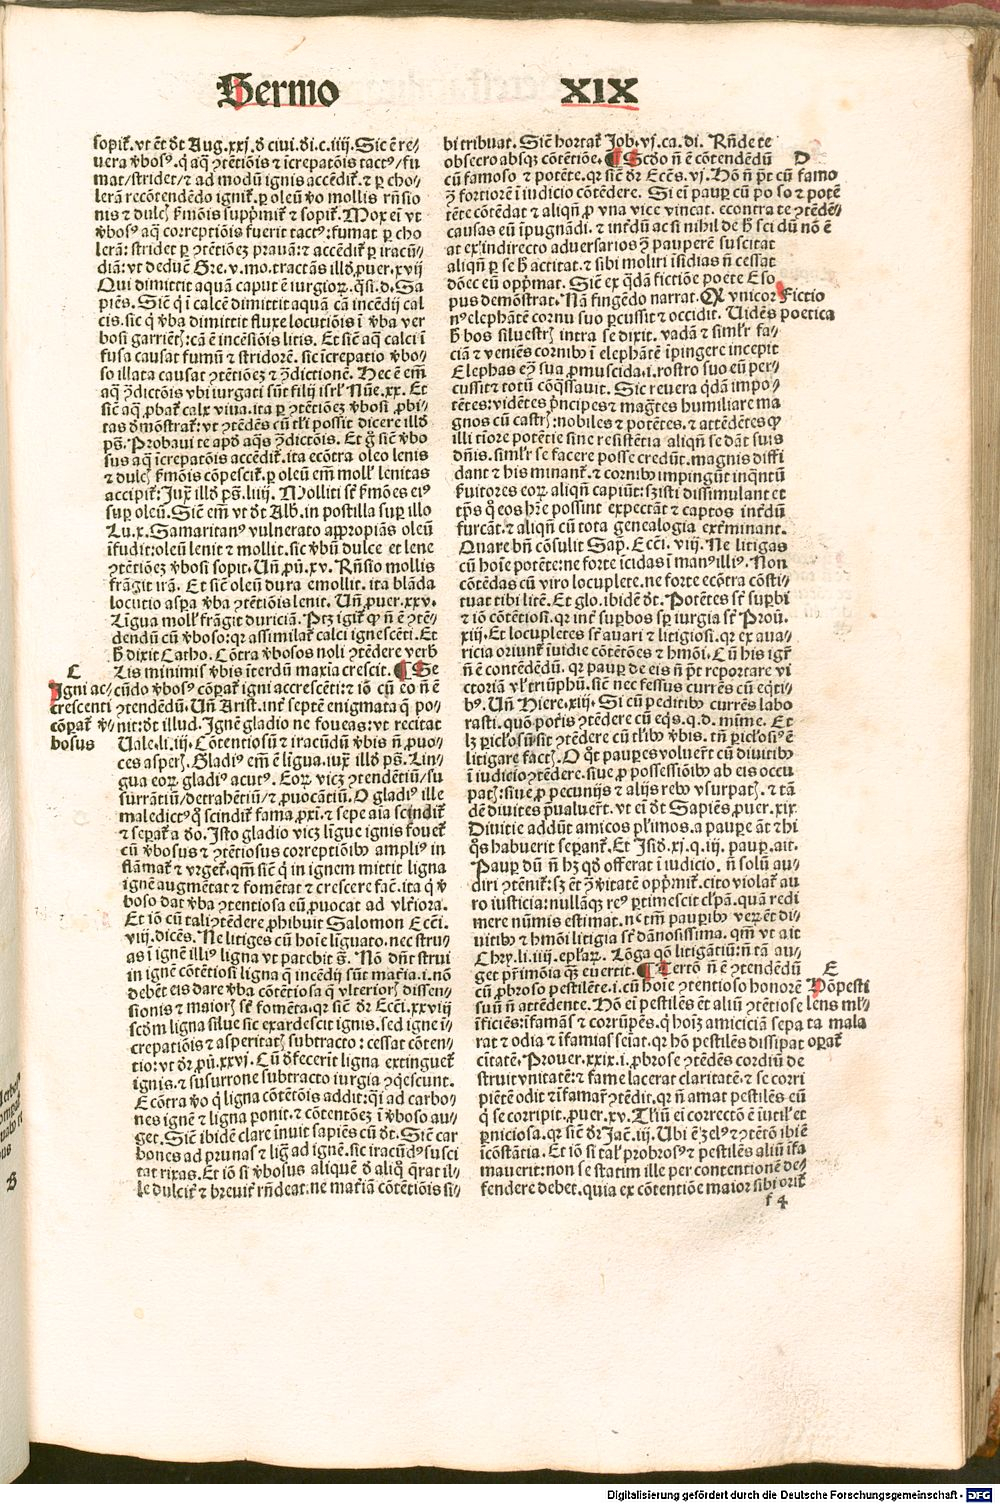 Sermo XIX
sopit̃. vt ẽt d̃t Aug. xxj. d̃ ciui. di. c. iiij. Sic ẽ re⸗
uera v̾bosꝰ. q̃ aq̃ ꝯtẽtiõis ⁊ ĩcrepatõis tactꝰ/fu
mat/stridet/⁊ ad modũ ignis accẽdit̃. ⁊ ꝑ cho⸗
lerã recõtendẽdo ignit̃. ꝑ oleũ v̾o mollis rñsio
nis ⁊ dulcꝭ s̾mõis supp̃mit̃ ⁊ sopit̃. Mox eĩ vt
v̾bosꝰ aq̃ correptiõis fuerit tactꝰ: fumat ꝑ cho
lerã: stridet ꝑ ꝯtẽtiõeꝫ prauã: ⁊ accẽdit̃ ꝑ iracũ⸗
diã: vt deducẽ Gre. v. mo. tractãs illd̾ ꝓuer. xvij
Qui dimittit aquã caput ẽ iurgioꝝ. q̃si. d. Sa
piẽs. Sic̃ q̃ ĩ calcẽ dimittit aquã cã incẽdij cal
cis. sic q̃ v̾ba dimittit fluxe locutiõis ĩ v̾ba ver
bosi garriẽtꝭ: cã ẽ incẽsiõis litis. Et sic̃ aq̃ calci ĩ
fusa causat fumũ ⁊ stridorẽ. sic ĩcrepatio v̾bo⸗
so illata causat ꝯtẽtiõeꝫ ⁊ ꝯ̃dictionẽ. Hec ẽ em̃
aq̃ ꝯ̃dictõis vbi iurgati sũt filij isrl̃ Nũe. xx. Et
sic̃ aq̃ ꝓbat̃ calx viua. ita ꝑ ꝯtẽtiõeꝫ v̾bosi ꝓbi⸗
tas d̾mõstrat̃: vt ꝯtẽdẽs cũ tl̃i possit dicere illd̾
ps̃. Probaui te apd̾ aq̃s ꝯ̃dictõis. Et g̊ sic̃ v̾bo
sus aq̃ ĩcrepatõis accẽdit̃. ita ecõtra oleo lenis
⁊ dulcꝭ s̾mõis cõpescit̃. ꝑ oleũ em̃ moll̾ lenitas
accipit̃: Jux̃ illd̾ ps̃. liiij. Molliti st̃ s̾mões eiꝰ
suꝑ oleũ. Sic̃ em̃ vt d̃t Alb̾. in postilla suꝑ illo
Lu. x. Samaritanꝰ vulnerato appropiãs oleũ
ĩfudit: oleũ lenit ⁊ mollit. sic v̾bũ dulce et lene
ꝯtẽtiõeꝫ v̾bosi sopit. Uñ ꝓũ. xv. Rñsio mollis
frãgit irã. Et sic̃ oleũ dura emollit. ita blãda
locutio aspa v̾ba ꝯtẽtiõis lenit. Uñ ꝓuer. xxv.
Lĩgua moll̾ frãgit duriciã. Ptꝫ igit̃ ꝙ ñ ẽ ꝯtẽ⸗
dendũ cũ v̾boso: qr assimilat̃ calci ignescẽti. Et
h̾ dixit Catho. Cõtra v̾bosos noli ꝯtẽdere verb̾
Lis minimis v̾bis ĩterdũ maxĩa crescit. ¶ Se
cũdo v̾bosꝰ cõꝑat̃ igni accrescẽti: ⁊ iõ cũ eo ñ ẽ
ꝯtẽdendũ. Uñ Arist. int̾ septẽ enigmata q̃ po⸗
nit: d̃t illud. Ignẽ gladio ne foueas: vt recitat
Uale. li. iij. Cõtentiosũ ⁊ iracũdũ v̾bis ñ ꝓuo⸗
ces asperꝭ. Gladiꝰ em̃ ẽ lĩgua. iux̃ illd̾ ps̃. Lin⸗
gua eoꝝ. gladiꝰ acutꝰ. Eoꝝ. vicꝫ ꝯtendẽtiũ/su
surrãtiũ/detrahẽtiũ/⁊ ꝓuocãtiũ. O gladiꝰ ille
maledictꝰ q̊ scindit̃ fama ꝓxi. ⁊ sepe aĩa scindit̃
⁊ seꝑat̃ a d̾o. Isto gladio vicꝫ lĩgue ignis fouet̃
cũ v̾bosus ⁊ ꝯtẽtiosus correptiõibꝰ ampliꝰ in
flãmat̃ ⁊ vrget̃. qm̃ sic̃ q̃ in ignem mittit ligna
ignẽ augmẽtat ⁊ fomẽtat ⁊ crescere fac̃. ita q̃ v̾
boso dat v̾ba ꝯtentiosa eũ ꝓuocat ad vlt̾iora.
Et iõ cũ tali ꝯtẽdere ꝓhibuit Salomon Ecc̃i.
viij. dicẽs. Ne litiges cũ hoĩe lĩguato. nec stru⸗
as ĩ ignẽ illiꝰ ligna vt patebit s̃. Nõ dñt strui
in ignẽ cõtẽtiosi ligna q̃ incẽdij sũt mat̾ia. i. nõ
debẽt eis dare v̾ba cõtẽtiosa q̃ vlteriorꝭ dissen⸗
sionis ⁊ maiorꝭ st̃ fomẽta. qr sic̃ d̃r Ecc̃i. xxviij
scd̾m ligna silue sic exardescit ignis. sed igne ĩ⸗
crepatiõis ⁊ asperitatꝭ subtracto: cessat cõten⸗
tio: vt d̃r ꝓũ. xxvi. Cũ d̾fecerĩt ligna extinguet̃
ignis. ⁊ susurrone subtracto iurgia ꝯq̃escunt.
Ecõtra v̾o q̃ ligna cõtẽtõis addit: q̃i ad carbo⸗
nes ignẽ ⁊ ligna ponit. ⁊ cõtentõeꝫ ĩ v̾boso au⸗
get. Sic̃ ibidẽ clare ĩnuit sapiẽs cũ d̃t. Sic̃ car
bones ad prunas ⁊ lig̃ ad ignẽ. sic iracũdꝰ susci
tat rixas. Et iõ si v̾bosus aliquẽ d̾ aliq̃ q̃rat il⸗
le dulcit̾ ⁊ breuit̾ rñdeat. ne mat̾iã cõtẽtiõis si⸗
C
Igni ac⸗
crescenti
cõꝑat̃ v̾⸗
bosus
bi tribuat. Sic̃ hortat̃ Job. vj. ca. di. Rñde te
obsecro absqꝫ cõtẽtiõe. ¶ Scd̾o ñ ẽ cõtendẽdũ
cũ famoso ⁊ potẽte. qr sic̃ d̃r Ecc̃s. vj. Hõ ñ p̃t
ꝯ̃ fortiorẽ ĩ iudicio cõtẽdere. Si eĩ pauꝑ cũ po
tẽte cõtẽdat ⁊ aliqñ ꝓ vna vice vincat. econtra
causas eũ ĩpugnãdi. ⁊ int̾dũ ac si nihil de h̾ sci
at ex ĩndirecto aduersarios ꝯ̃ pauperẽ suscitat
aliqñ ꝑ se h̾ actitat. ⁊ sibi moliri ĩsidias ñ cessat
dõec eũ opp̃mat. Sic̃ ex q̃dã fictiõe poete Eso
pus demõstrat. Nã fingẽdo narrat. Qꝙ vnicor
nꝰ elephãtẽ cornu suo ꝑcussit ⁊ occidit. Uidẽs
h̾ bos siluestrꝭ intra se dixit. vadã ⁊ simlr̃ fa⸗
ciã ⁊ veniẽs cornibꝰ ĩ elephãtẽ ĩpingere incepit
Elephas eꝫ sua ꝓmuscida. i. rostro suo eũ per⸗
cussit ⁊ totũ cõq̃ssauit. Sic reuera q̃dã impo⸗
tẽtes: vidẽtes p̃ncipes ⁊ mag̃tes humiliare ma
gnos cũ castrꝭ: nobiles ⁊ potẽtes. ⁊ attẽdẽtes ꝙ
illi tiore potẽtie sine resistẽtia aliqñ se dãt suis
dñis. simlr̃ se facere posse credũt. magnis diffi
dant ⁊ his minant̃. ⁊ cornibꝰ impingũt inq̃ntũ
s̾uitores eoꝝ aliqñ capiũt: ꝫ isti dissimulant et
tp̃s q̊ eos hr̃e possint expectãt ⁊ captos int̾dũ
furcãt. ⁊ aliqñ cũ tota genealogia ext̾minant.
Quare bñ cõsulit Sap̃. Ecc̃i. viij. Ne litigas
cũ hoĩe potẽte: ne forte ĩcidas ĩ manꝰ illiꝰ. Non
cõtẽdas cũ viro locuplete. ne forte ecõtra cõsti⸗
tuat tibi litẽ. Et glo. ibidẽ d̃t. Potẽtes st̃ sup̾bi
⁊ iõ cõtẽtiosi. qr int̾ sup̾bos sp̃ iurgia st̃ Proũ.
xiij. Et locupletes st̃ auari ⁊ litigiosi. qr ex aua⸗
ricia oriunt̃ ĩuidie cõtẽtões ⁊ hmõi. Cũ his igr̃
ñ ẽ contẽdẽdũ. qr pauꝑ de eis ñ p̃t reportare vi
ctoriã vl̾ triũphũ. sic̃ nec fessus currẽs cũ eq̃ti⸗
bꝰ. Uñ Hiere. xiij. Si cũ peditibꝰ currẽs labo
rasti. quõ potis ꝯtẽdere cũ eq̃s. q. d. mĩme. Et
lꝫ piclosũ sit ꝯtẽdere cũ tlĩbꝰ v̾bis. tñ piclosꝰ ẽ
litigare factꝭ. O q̊t pauꝑes voluer̃t cũ diuitibꝰ
ĩ iudicio ꝯtẽdere. siue ꝓ possessiõibꝰ ab eis occu
patꝭ: siue ꝓ pecunijs ⁊ alijs rebꝰ vsurpatꝭ. ⁊ tã
dẽ diuites p̃ualuer̃t. vt eĩ d̃t Sapiẽs ꝓuer. xix
Diuitie addũt amicos pl̃imos. a pauꝑe aũt ⁊ hi
q̊s habuerit seꝑant̃. Et Isid̾. xj. q. iij. pauꝑ. ait.
Pauꝑ dũ ñ hꝫ qd̾ offerat ĩ iudicio. ñ solũ au⸗
diri ꝯtẽnit̃: sꝫ ẽt ꝯ̃ v̾itatẽ opp̃mit̃. cito violat̃ au
ro iusticia: nullãqꝫ reꝰ ꝑtimescit cl̃pã. quã redi
mere nũmis estimat. nc̃ tm̃ paupibꝰ veꝝ ẽt di⸗
uitibꝰ ⁊ hmõi litigia st̃ dãnosissima. qm̃ vt ait
Chry. li. iiij. epl̃aꝝ. Lõga qõ litigãtiũ: ñ tã au⸗
get pr̃imõia q̃ꝫ euertit. ¶ Tertõ ñ ẽ ꝯtendẽdũ
cũ ꝓbroso pestilẽte. i. cũ hoĩe ꝯtentioso honorẽ
suũ ñ attẽdente. Hõ eĩ pestilẽs ẽt aliũ ꝯtẽtiose
ĩficiẽs: ĩfamãs ⁊ corrũpẽs. q̃ hoĩꝫ amiciciã sepa
rat ⁊ odia ⁊ ĩfamias seĩat. qr hõ pestilẽs dissipat
ciĩtatẽ. Prouer. xxix. i. ꝓbrose ꝯtẽdẽs cordiũ de
struit vnitatẽ: ⁊ fame lacerat claritatẽ. ⁊ se corri
piẽtẽ odit ⁊ ĩfamar̃ ꝯtẽdit. qr ñ amat pestilẽs eũ
q̃ se corripit. ꝓuer. xv. Thĩũ ei correctõ ẽ ĩutil̾ et
ꝑniciosa. qr sic̃ d̃r Jac̃. iij. Ubi ẽ ꝫelꝰ ⁊ ꝯtẽtõ ibi ẽ
ĩcõstãtia. Et iõ si tal̾ ꝓbrosꝰ ⁊ pestilẽs aliũ ĩfa
mauerit: non se statim ille per contentionẽ de⸗
fendere debet. quia ex cõtentiõe maior sibi orit̃
D
cũ famo
so ⁊ potẽ
te ꝯtẽdẽ⸗
dũ nõ ẽ
Fictio
poetica
E
Hõ pesti
lens ml̾⸗
ta mala
oꝑat̃
f 4